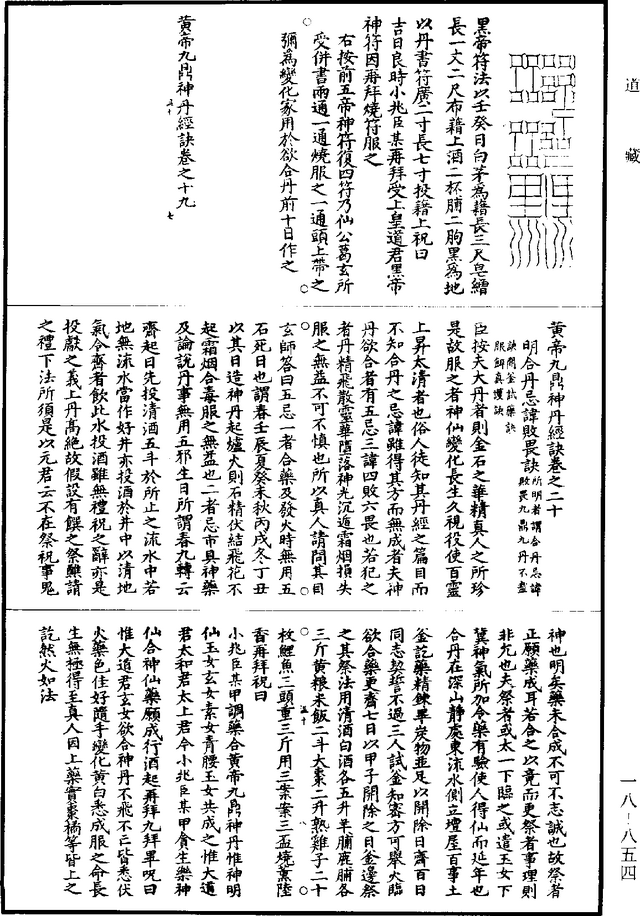 道藏
黑帝符法以壬癸日白茅為藉長三尺皂繒
長一丈二尺布藉上酒二杯脯二朐黑為地
以丹書符廣二寸長七寸投藉上祝曰
吉日良時小兆臣某再拜受上皇道君黑帝
神符因再拜燒符服之
右按前五帝神符復四符乃仙公葛玄所
受併書兩通一通燒服之一通頭上帶之
彌為變化家用於欲合丹前十日作之
黃帝九鼎神丹經訣卷之十九
五十
七
黃帝九鼎神丹經訣卷之二十
明合丹忌諱敗畏訣所明者謂合丹忌諱
敗畏九鼎九丹不盡
訣開釜試藥訣
服餌真護訣
臣按夫大丹者則金石之華精真人之所珍
是故服之者神仙變化長生久視役使百靈
上昇太清者也俗人徒知其丹經之篇目而
不知合丹之忌諱雖得其方而無成者夫神
丹欲合者有五忌三諱四敗六畏也若犯之
者丹精飛散靈華墮落神光沉遁霜烟損失
服之無益不可不慎也所以真人請問其目
玄師答曰五忌一者合藥及發火時無用五
石死日也謂春壬辰夏癸未秋丙戌冬丁丑
以其日造神丹起爐火則石精伏結飛花不
起霜烟合毒服之無益也二者忌市具神藥
及論說丹事無用五邪生日所謂春九轉云
齋起日先投清酒五斗於所止之流水中若
地無流水當作好井亦投酒於井中以清地
氣令齋者飲此水投酒雖無禮祝之辭亦是
投獻之義上丹高絕故假設有饌之祭藥請
之禮下法所須是以元君云不在祭祝事鬼
神也明矣藥未合成不可不志誠也故祭者
正願藥成耳若合之以竟而更祭者事理則
非允也夫祭者或太一下臨之或遣玉女下
冀神氣所加令藥有驗使人得仙而延年也
合丹在深山靜處東流水側立壇屋百事土
釜訖藥精鍊畢炭物並足以開除日齋百日
同志契誓不過三人試釜知密方可舉火臨
欲合藥更齋七日以甲子開除之日釜邊祭
之其祭法用清酒白酒各五升羊脯鹿脯各
三斤黃粮米飯二斗大棗二升熟雞子二十
五十
枚鯉魚三頭重三斤用三案案三盃燒薰陸
香再拜祝曰
小兆臣某甲調藥合黃帝九鼎神丹惟神明
仙玉女玄女素女青腰玉女共成之惟大道
君太和君太上君令小兆臣某甲貪生樂神
仙合神仙藥願成行酒起再拜九拜畢呪曰
惟大道君玄女欲合神丹不飛不亡皆悉伏
火藥色佳好隨手變化黃白悉成服之命長
生無極得至真人因上藥實棗橘等皆上之
訖然火如法
一八-八五四